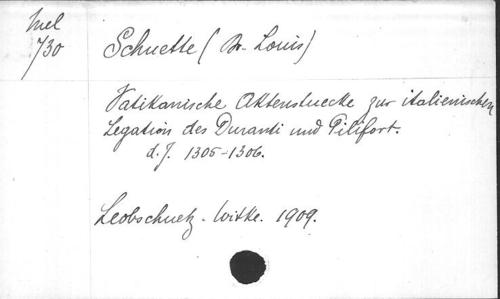 Mel
730
Schuette (Dr. Louis)
Vatikanische Aktenstuecke zur italienischen
Legation des Duranti und Pilifort.
d. J. 1305-1306.
Leobschuetz. Witke. 1909.